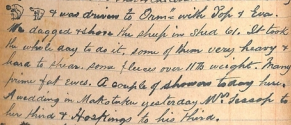 & was driven to Dam with Top & Eve.
We dagged & shore the sheep in Shed 61. It took
the whole day to do it, some of them very heavy &
hard to shear. some fleeces over 11 lb weight. Many
prime fat ewes. A couple of showers today here.
A wedding in Makotuku yesterday Mrs Jessop to
her third & Hoskings to his third.